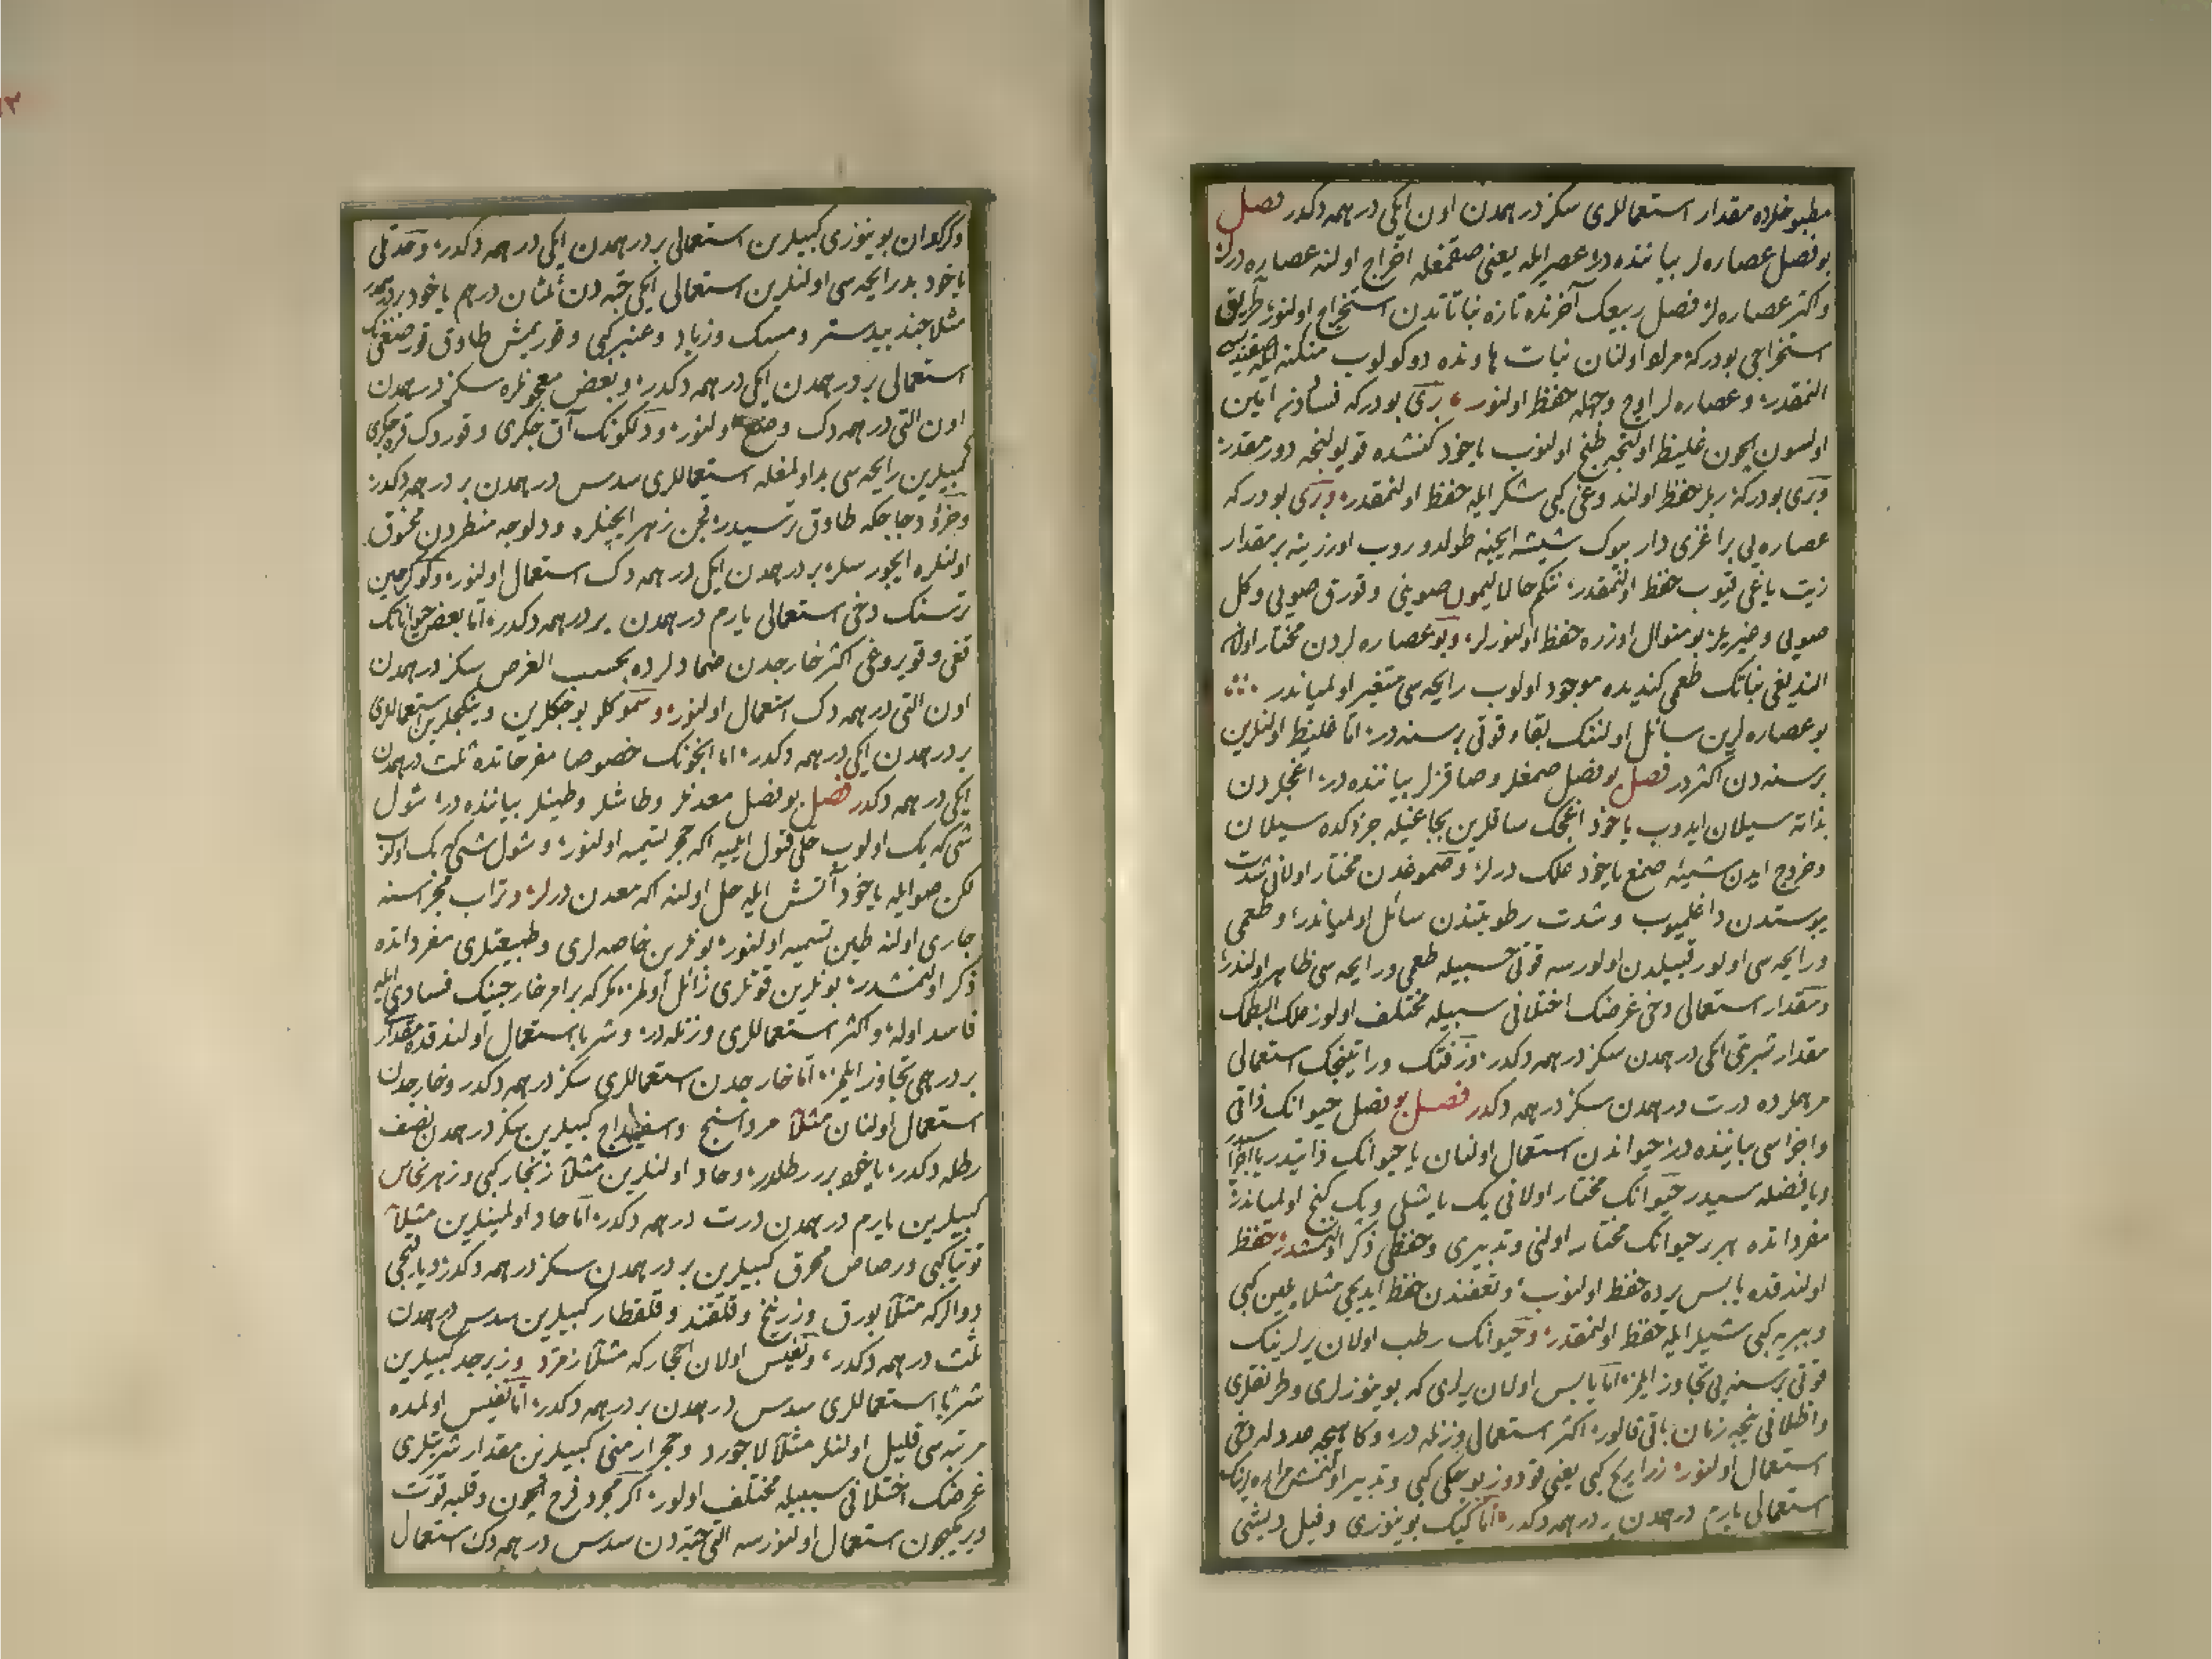 مطبوخلرده مقدار استعماللری سكز درهمدن اون ایكی درهمه دكدر فصل
بو فصل عصاره لر بیاننده در عصر ایله یعنی صقمغله اخراج اولنه عصاره درلر
واكثر عصاره لر فصل ربیعك آخرنده تازه نباتاتدن استخراج اولنور طریق
استخراجی بودركه مراد اولنان نبات هاونده دوكولوب منكنه ایله
النمقدر وعصاره لر اوچ وجهله حفظ اولنور بری بودركه فساددن امین
اولسون ایچون غلیظ اولنجه طبخ اولنوب یاخود كنشده قویولنجه دورمقدر
وبری بودركه بریله حفظ اولندوغی كبی شكر ایله حفظ اولنمقدر وبری بودركه
عصاره یی بر اغزی دار بیوك شیشه ایچنه طولدوروب اوزرینه بر مقدار
زیت یاغی قیوب حفظ اولنمقدر نتكم حالا لیمون صوینی وقورق صویی وكل
صویی وغیریلر بو منوال اوزره حفظ اولنورلر وبو عصاره لردن مختار اولان
الندیغی نباتك طعمی كندیده موجود اولوب رایحه سی متغیر اولمیاندر
بو عصاره لرین سائل اولننك بقاء قوتی بر سنه در اما غلیظ اولنلرین
بر سنه دن اكثردر فصل بو فصل صمغلر وصاقزلر بیاننده در اغجلردن
بذاته سیلان ایدوب یاخود اغجك ساقلرین بچاغیله جزدكده سیلان
وخروج ایدن شیئه صمغ یاخود علك درلر وصموغدن مختار اولانی شدت
یبوستدن داغلمیوب وشدت رطوبتندن سائل اولمیاندر وطعمی
ورایحه سی اولور قبیلدن اولورسه قوتی حسبیله طعمی ورایحه سی ظاهر اولندر
ومقدار استعمالی دخی غرضك اختلافی سببیله مختلف اولور علك البطمك
مقدار شربتی ایكی درهمدن سكز درهمه دكدر وزفتك وراتینجك استعمالی
مرهملرده درت درهمدن سكز درهمه دكدر فصل بو فصل حیوانك ذاتی
واجزاسی بیاننده در حیواندن استعمال اولنان یا حیوانك ذاتیدر یا اجزا
ویا فضله سیدر حیوانك مختار اولانی پك یاشلی وپك كنج اولمیاندر
مفرداتده هر بر حیوانك مختار اولنی وتدبیری وحفظی ذكر اولنمشدر حفظ
اولندقده یابس یرده حفظ اولنوب وتعفندن حفظ ایدیجی مثلا كبی
وبیریه كبی شیلر ایله حفظ اولنمقدر وحیوانك رطب اولان یرلرینك
قوتی بر سنه یی تجاوز ایلمز اما یابس اولان یرلری كه بوینوزلری وطرنقلری
واظلافی نیجه زمان باقی قالور اكثر استعمالی وزنله در وكاهیجه عددله دخی
استعمال اولنور ذراریح كبی یعنی قودوز بوجكی كبی وتدبیر اولنمش
استعمالی یارم درهمدن بر درهمه دكدر اما كییك بوینوزی وفیل دیشی
وكركدان بوینوزی كبیلرین استعمالی بر درهمدن ایكی درهمه دكدر
یاخود بد رایحه سی اولنلرین استعمالی ایكی حبه دن ثلثان درهم یاخود
مثلا جند بیدستر ومسك وزباد وعنبر كبی وقوریمش طاوق
استعمالی بر درهمدن ایكی درهمه دكدر وبعض معجونلره سكز درهمدن
اون التی درهمه دك وضع اولنور ودلكونك آق جكری وقوردك قره جكری
كبیلرین رایحه سی بد اولمغله استعماللری سدس درهمدن بر درهمه دكدر
وخرؤ دجاجكه طاوق ترسیدر زهر ایچنلره ودلوجه منطردن مخنوق
اولنلره ایچورسلر بر درهمدن ایكی درهمه دك استعمال اولنور وكوكرجین
ترسنك دخی استعمالی یارم درهمدن بر درهمه دكدر اما بعض حیواناتك
قغی وقویروغی اكثر خارجدن ضمادلرده بحسب الغرض سكز درهمدن
اون التی درهمه دك استعمال اولنور وسموكلو بوجكلرین وینكجلرین استعماللری
بر درهمدن ایكی درهمه دكدر اما انجونك خصوصا مفرحاتده ثلث درهمدن
ایكی درهمه دكدر فصل بو فصل معدنلر وطاشلر وطینلر بیاننده در شول
شی كه پك اولوب حلی قبول ایلمیه اكه حجر تسمیه اولنور وشول شی كه پك اولوب
لكن صو ایله یاخود آتش ایله حل اولنه اكه معدن درلر وتراب مجراسنه
جاری اولنه طین تسمیه اولنور بونلرین خاصه لری وطبیعتلری مفرداتده
ذكر اولنمشدر بونلرین قوتلری زائل اولمز مكر كه بر امر خارجینك فسادی ایله
فاسد اوله واكثر استعماللری وزنله در وشربا استعمال اولندقده مقدار
بر درهمی تجاوز ایلمز اما خارجدن استعماللری سكز درهمه دكدر وخارجدن
استعمال اولنان مثلا مرداسنج واسفیداج كبیلرین سكز درهمدن نصف
رطله دكدر یاخود بر رطلدر وحاد اولنلرین مثلا زنجار كبی وزهر نحاس
كبیلرین یارم درهمدن درت درهمه دكدر اما حاد اولمینلرین مثلا
توتیا كبی ورصاص محرق كبیلرین بر درهمدن سكز درهمه دكدر ویاریجی
دوالر كه مثلا بورق وزرنیخ وقلقند وقلقطار كبیلرین سدس درهمدن
ثلث درهمه دكدر ونفیس اولان احجار كه مثلا زمرد وزبرجد كبیلرین
شربا استعماللری سدس درهمدن بر درهمه دكدر اما نفیس اولمده
مرتبه سی قلیل اولنلر مثلا لاجورد وحجر ارمنی كبیلرین مقدار شربتلری
غرضك اختلافی سببیله مختلف اولور اكر مجرد فرح ایچون وقلبه قوت
ویرمكیچون استعمال اولنورسه التی حبه دن سدس درهمه دك استعمال